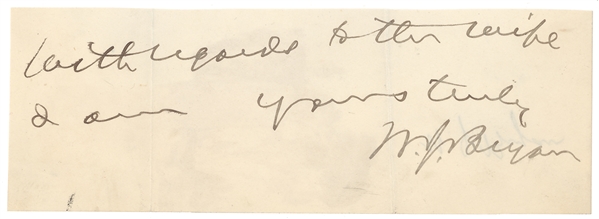 With regards to the wife
I am yours truly
W. J. Bryan